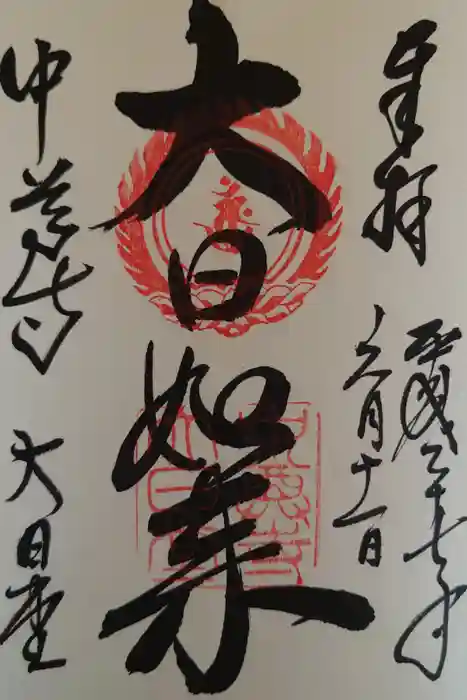 奉拝
平成二十七年
月十一日
大日如来
中尊寺 大日堂